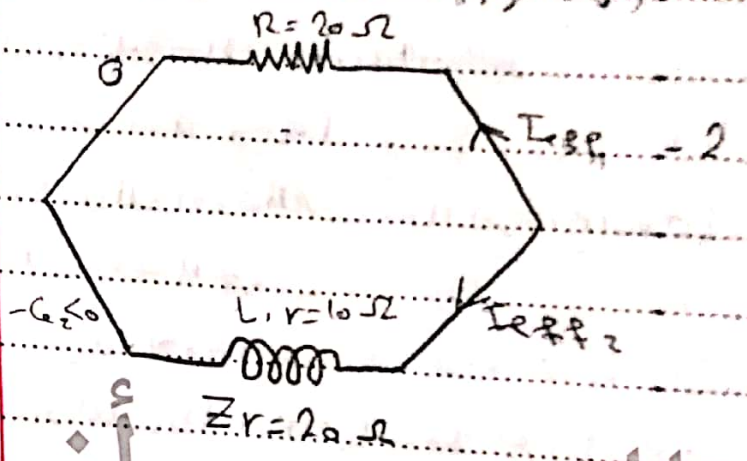 R=20 Ω
0
Ieff₁ - 2
-φ₂<0
L, r=10 Ω
Ieff₂
Zr=20 Ω